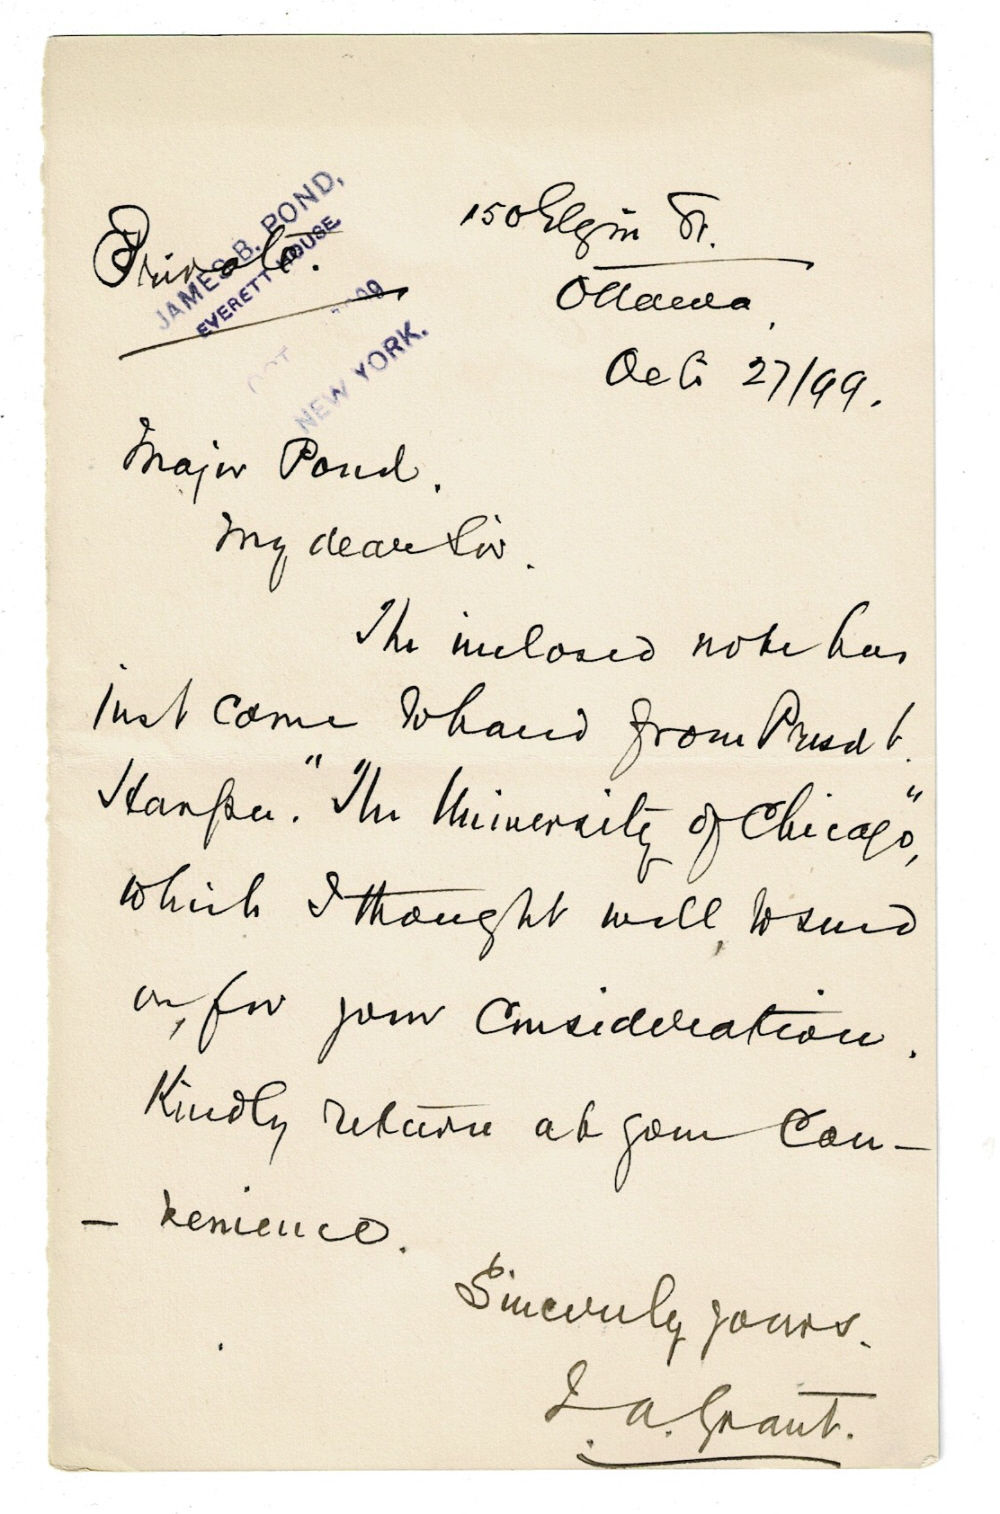 Private.
JAMES B. POND,
EVERETT HOUSE
OCT
NEW YORK.
150 Elgin St.
Ottawa,
Oct 27/99.
Major Pond.
My dear Sir.
The inclosed note has
just come to hand from Presdt.
Harper. "The University of Chicago",
which I thought well, to send
on, for your consideration.
Kindly return at your con-
- venience.
Sincerely yours.
J. A. Grant.